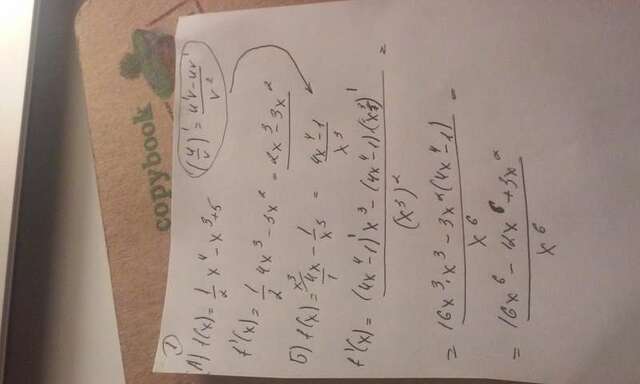 copybook
①
А) f(x) = 1/2 x⁴ - x³ + 5
(u/v)' = (u'v - uv')/v²
f'(x) = 1/2 4x³ - 3x² = 2x³ - 3x²
Б) f(x) = 4x/1 - 1/x³ = (4x⁴-1)/x³
x³
f'(x) = ((4x⁴-1)'x³ - (4x⁴-1)·(x³)')/(x³)² =
= (16x³·x³ - 3x²(4x⁴-1))/x⁶ =
= (16x⁶ - 12x⁶ + 3x²)/x⁶